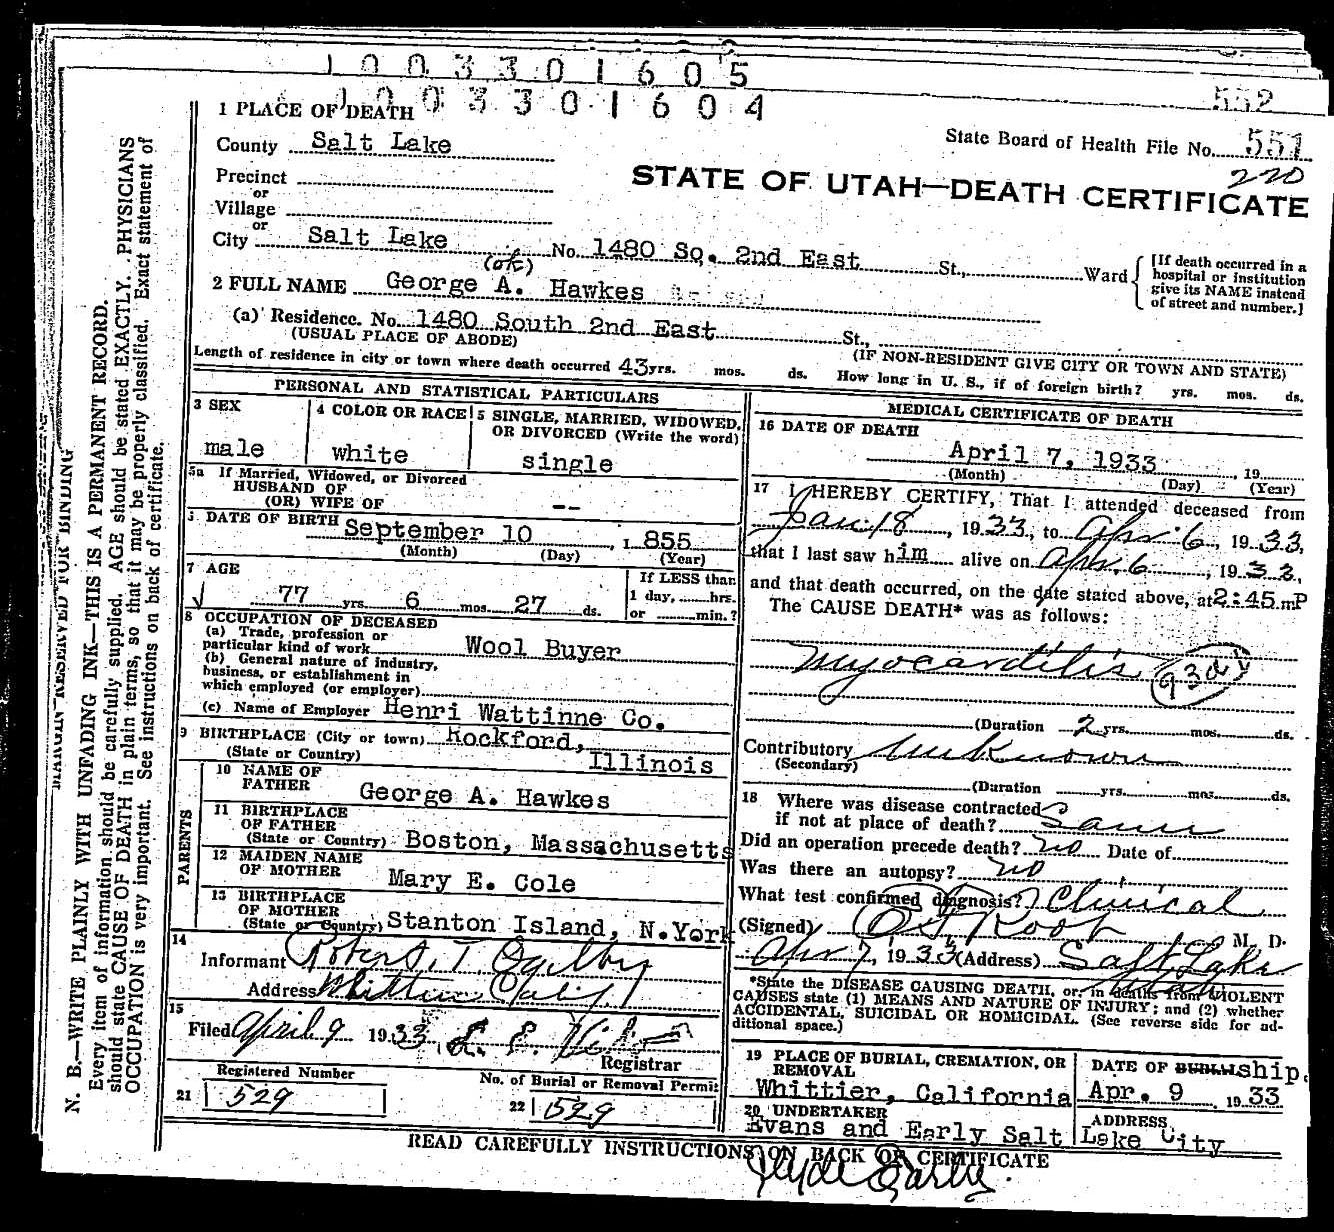 1003301605
1003301604
552
1 PLACE OF DEATH
State Board of Health File No. 551
220
County Salt Lake
STATE OF UTAH—DEATH CERTIFICATE
Precinct
or
Village
or
City Salt Lake No. 1480 So. 2nd East St., Ward
[If death occurred in a
hospital or institution
give its NAME instead
of street and number.]
(ok)
2 FULL NAME George A. Hawkes
(a) Residence. No. 1480 South 2nd East St.,
(USUAL PLACE OF ABODE) (IF NON-RESIDENT GIVE CITY OR TOWN AND STATE)
Length of residence in city or town where death occurred 43 yrs. mos. ds. How long in U. S., if of foreign birth? yrs. mos. ds.
PERSONAL AND STATISTICAL PARTICULARS
3 SEX
male
4 COLOR OR RACE
white
5 SINGLE, MARRIED, WIDOWED,
OR DIVORCED (Write the word)
single
5a If Married, Widowed, or Divorced
HUSBAND OF
(OR) WIFE OF --
DATE OF BIRTH September 10, 1855
(Month) (Day) (Year)
7 AGE
77 yrs. 6 mos. 27 ds.
If LESS than
1 day, hrs.
or min.?
8 OCCUPATION OF DECEASED
(a) Trade, profession or
particular kind of work Wool Buyer
(b) General nature of industry,
business, or establishment in
which employed (or employer)
(c) Name of Employer Henri Wattinne Co.
9 BIRTHPLACE (City or town) Rockford,
(State or Country) Illinois
PARENTS
10 NAME OF
FATHER George A. Hawkes
11 BIRTHPLACE
OF FATHER
(State or Country) Boston, Massachusetts
12 MAIDEN NAME
OF MOTHER Mary E. Cole
13 BIRTHPLACE
OF MOTHER
(State or Country) Stanton Island, N.York
14
Informant Robert T. Ogilby
Address Whittier, Calif
15
Filed April 9 1933,
Registrar
Registered Number
21 529
No. of Burial or Removal Permit
22 529
MEDICAL CERTIFICATE OF DEATH
16 DATE OF DEATH
April 7, 1933, 19
(Month) (Day) (Year)
17 I HEREBY CERTIFY, That I attended deceased from
Jan. 18, 1933, to Apr. 6, 1933,
that I last saw him alive on Apr. 6, 1933,
and that death occurred, on the date stated above, at 2:45 mP
The CAUSE DEATH* was as follows:
Myocarditis
(Duration 2 yrs. mos. ds.
Contributory Unknown
(Secondary)
(Duration yrs. mos. ds.
18 Where was disease contracted
if not at place of death? Same
Did an operation precede death? No Date of
Was there an autopsy? No
What test confirmed diagnosis? Clinical
(Signed) Root M. D.
Apr 7, 1933 (Address) Salt Lake
Utah
*State the DISEASE CAUSING DEATH, or, in deaths from VIOLENT
CAUSES state (1) MEANS AND NATURE OF INJURY; and (2) whether
ACCIDENTAL, SUICIDAL OR HOMICIDAL. (See reverse side for ad-
ditional space.)
19 PLACE OF BURIAL, CREMATION, OR
REMOVAL
Whittier, California
DATE OF BURIAL ship.
Apr. 9, 1933
20 UNDERTAKER
Evans and Early Salt
ADDRESS
Lake City
READ CAREFULLY INSTRUCTIONS ON BACK OF CERTIFICATE
MARGIN RESERVED FOR BINDING
N. B.—WRITE PLAINLY WITH UNFADING INK—THIS IS A PERMANENT RECORD.
Every item of information should be carefully supplied. AGE should be stated EXACTLY. PHYSICIANS
should state CAUSE OF DEATH in plain terms, so that it may be properly classified. Exact statement of
OCCUPATION is very important. See instructions on back of certificate.